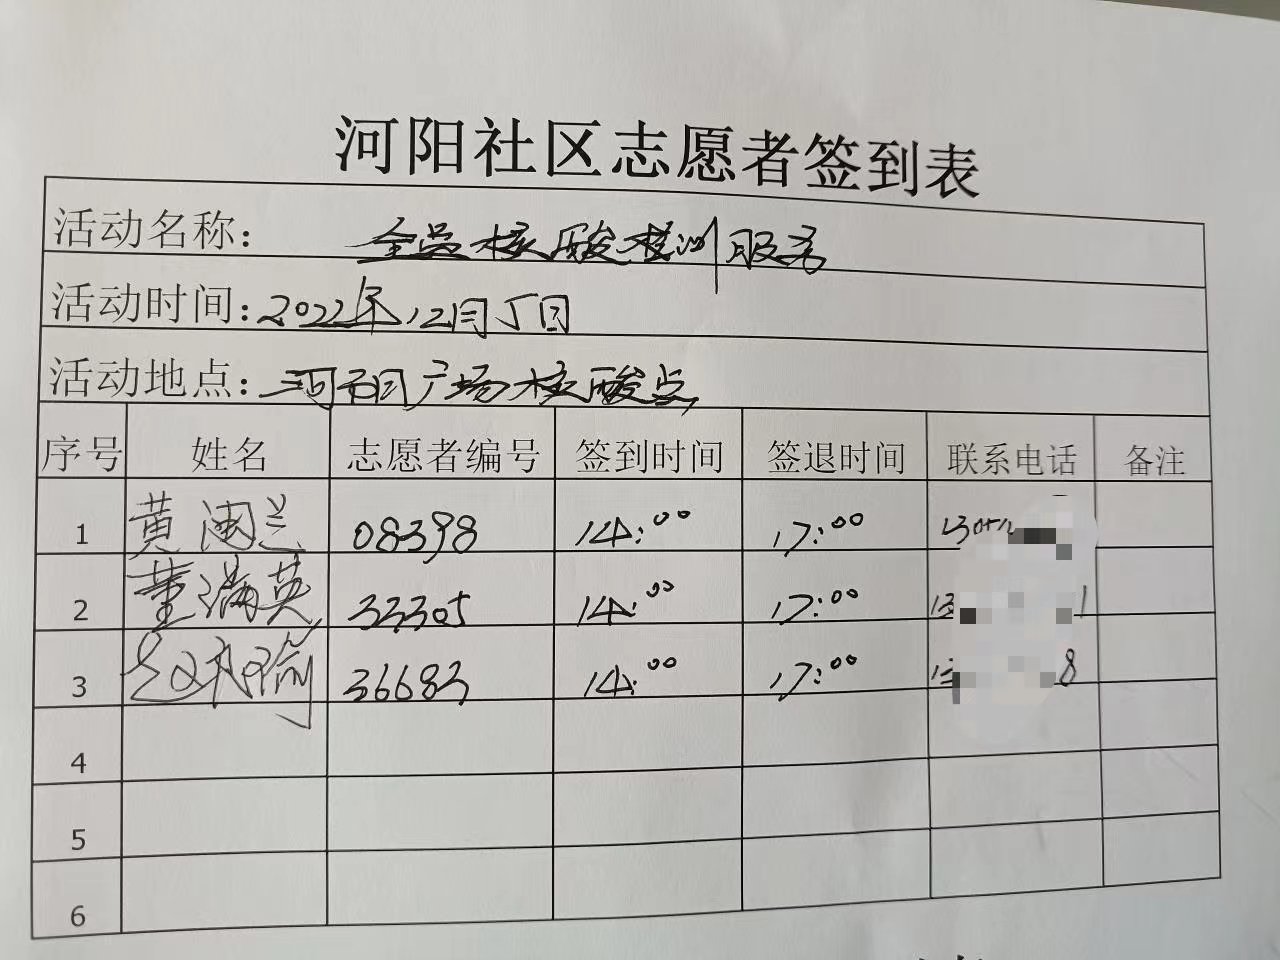 河阳社区志愿者签到表
活动名称: 全员核酸检测服务
活动时间: 2022年12月5日
活动地点: 河阳广场核酸点
序号 姓名 志愿者编号 签到时间 签退时间 联系电话 备注
1 黄闽兰 08398 14:00 17:00
2 董满英 33305 14:00 17:00
3 36683 14:00 17:00 8
4
5
6